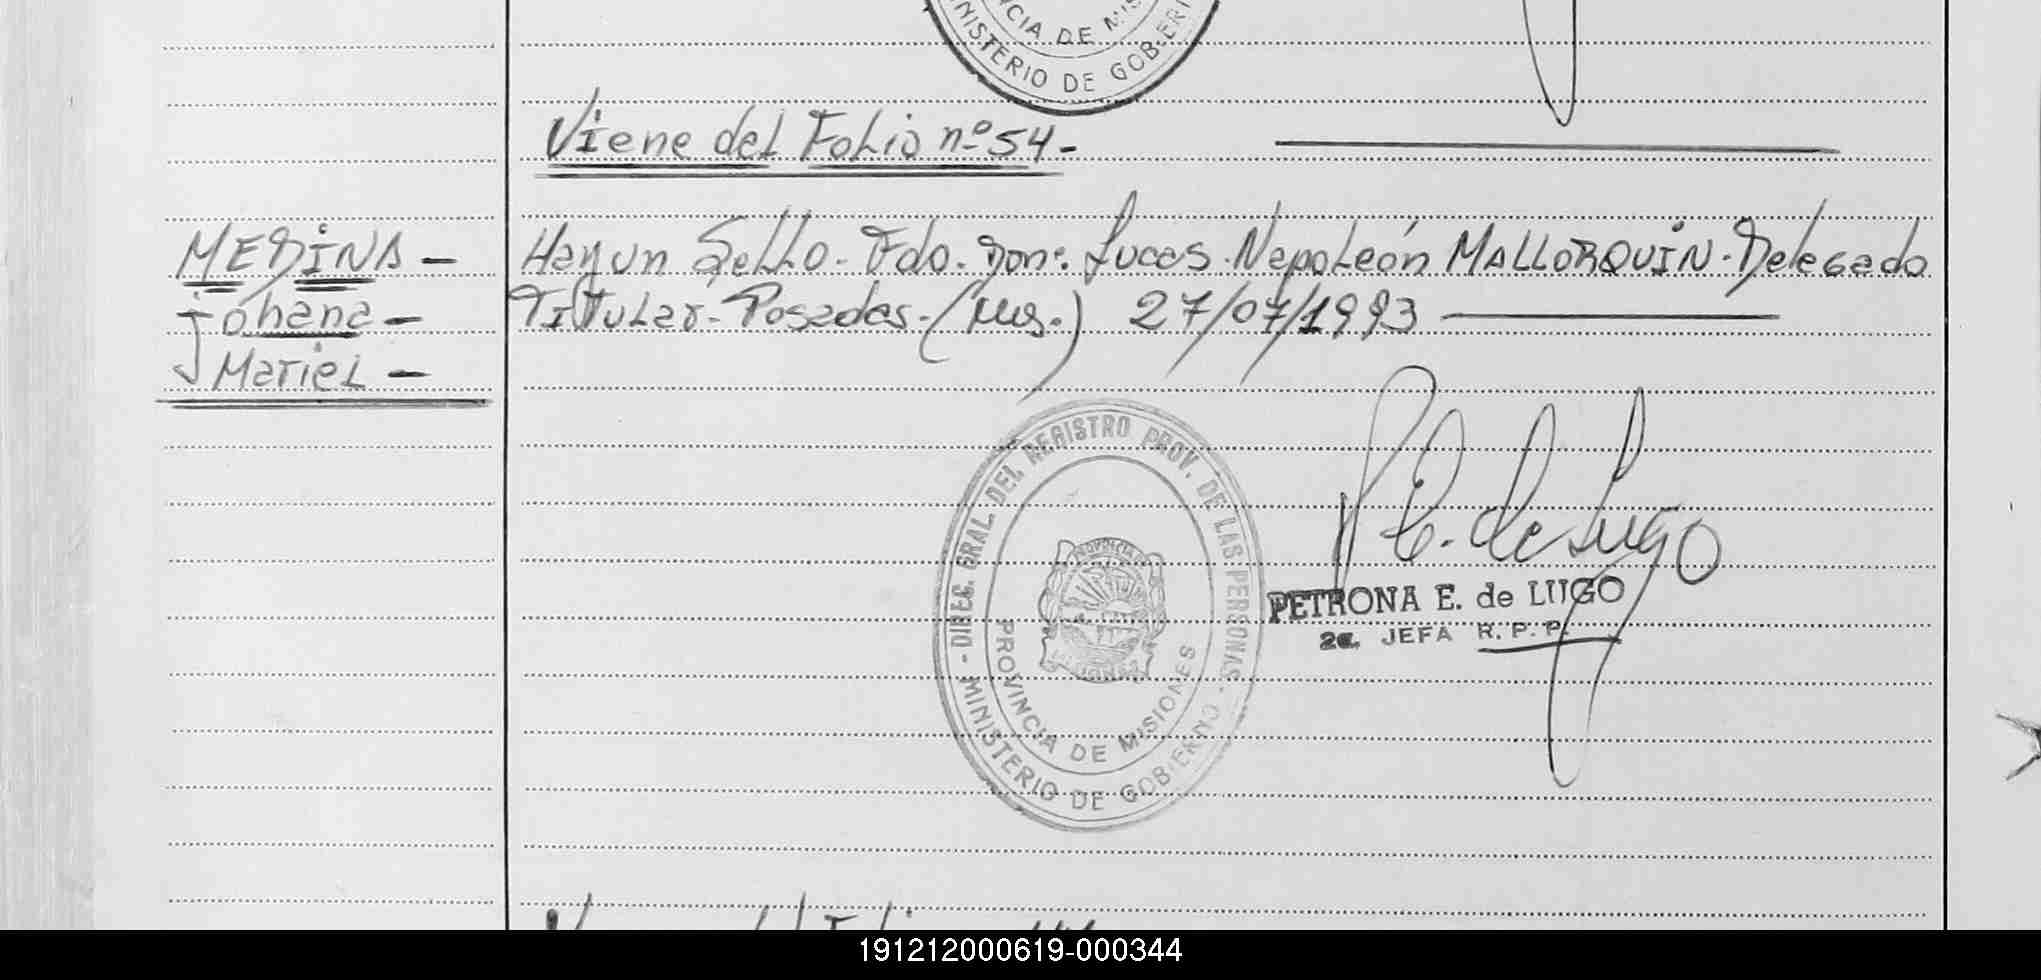 MINISTERIO DE GOBIERN
NCIA DE MIS
Viene del Folio nº 54-
MEDINA -
Johana -
Mariel -
Hay un Sello. Fdo. Don: Lucas Napoleón MALLORQUIN. Delegado
Titular. Posadas. (Mns.) 27/07/1993
- DIREC. GRAL. DEL REGISTRO PROV. DE LAS PERSONAS -
MINISTERIO DE GOBIERNO
PROVINCIA DE MISIONES
PROVINCIA DE
MISIONES
P E. de Lugo
PETRONA E. de LUGO
2a. JEFA R. P. P.
191212000619-000344